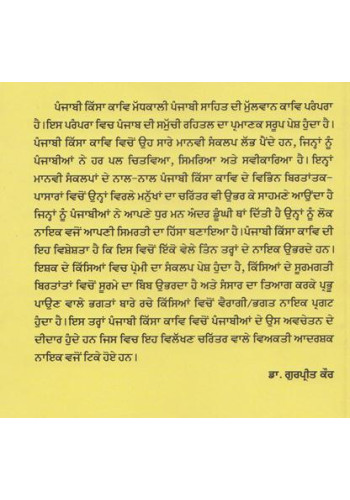 ਪੰਜਾਬੀ ਕਿੱਸਾ ਕਾਵਿ ਮੱਧਕਾਲੀ ਪੰਜਾਬੀ ਸਾਹਿਤ ਦੀ ਮੁੱਲਵਾਨ ਕਾਵਿ ਪਰੰਪਰਾ
ਹੈ।ਇਸ ਪਰੰਪਰਾ ਵਿਚ ਪੰਜਾਬ ਦੀ ਸਮੁੱਚੀ ਰਹਿਤਲ ਦਾ ਪ੍ਰਮਾਣਕ ਸਰੂਪ ਪੇਸ਼ ਹੁੰਦਾ ਹੈ।
ਪੰਜਾਬੀ ਕਿੱਸਾ ਕਾਵਿ ਵਿਚੋਂ ਉਹ ਸਾਰੇ ਮਾਨਵੀ ਸੰਕਲਪ ਲੱਭ ਪੈਂਦੇ ਹਨ, ਜਿਨ੍ਹਾਂ ਨੂੰ
ਪੰਜਾਬੀਆਂ ਨੇ ਹਰ ਪਲ ਚਿਤਵਿਆ, ਸਿਮਰਿਆ ਅਤੇ ਸਵੀਕਾਰਿਆ ਹੈ। ਇਨ੍ਹਾਂ
ਮਾਨਵੀ ਸੰਕਲਪਾਂ ਦੇ ਨਾਲ-ਨਾਲ ਪੰਜਾਬੀ ਕਿੱਸਾ ਕਾਵਿ ਦੇ ਵਿਭਿੰਨ ਬਿਰਤਾਂਤਕ-
ਪਾਸਾਰਾਂ ਵਿਚੋਂ ਉਨ੍ਹਾਂ ਵਿਰਲੇ ਮਨੁੱਖਾਂ ਦਾ ਚਰਿੱਤਰ ਵੀ ਉਭਰ ਕੇ ਸਾਹਮਣੇ ਆਉਂਦਾ ਹੈ
ਜਿਨ੍ਹਾਂ ਨੂੰ ਪੰਜਾਬੀਆਂ ਨੇ ਆਪਣੇ ਧੁਰ ਮਨ ਅੰਦਰ ਡੂੰਘੀ ਥਾਂ ਦਿੱਤੀ ਹੈ ਉਨ੍ਹਾਂ ਨੂੰ ਲੋਕ
ਨਾਇਕ ਵਜੋਂ ਆਪਣੀ ਸਿਮਰਤੀ ਦਾ ਹਿੱਸਾ ਬਣਾਇਆ ਹੈ।ਪੰਜਾਬੀ ਕਿੱਸਾ ਕਾਵਿ ਦੀ
ਇਹ ਵਿਸ਼ੇਸ਼ਤਾ ਹੈ ਕਿ ਇਸ ਵਿਚੋਂ ਇੱਕੋ ਵੇਲੇ ਤਿੰਨ ਤਰ੍ਹਾਂ ਦੇ ਨਾਇਕ ਉਭਰਦੇ ਹਨ।
ਇਸ਼ਕ ਦੇ ਕਿੱਸਿਆਂ ਵਿਚ ਪ੍ਰੇਮੀ ਦਾ ਸੰਕਲਪ ਪੇਸ਼ ਹੁੰਦਾ ਹੈ, ਕਿੱਸਿਆਂ ਦੇ ਸੂਰਮਗਤੀ
ਬਿਰਤਾਂਤਾਂ ਵਿਚੋਂ ਸੂਰਮੇ ਦਾ ਬਿੰਬ ਉਭਰਦਾ ਹੈ ਅਤੇ ਸੰਸਾਰ ਦਾ ਤਿਆਗ ਕਰਕੇ ਪ੍ਰਭੂ
ਪਾਉਣ ਵਾਲੇ ਭਗਤਾਂ ਬਾਰੇ ਰਚੇ ਕਿੱਸਿਆਂ ਵਿਚੋਂ ਵੈਰਾਗੀ/ਭਗਤ ਨਾਇਕ ਪ੍ਰਗਟ
ਹੁੰਦਾ ਹੈ।ਇਸ ਤਰ੍ਹਾਂ ਪੰਜਾਬੀ ਕਿੱਸਾ ਕਾਵਿ ਵਿਚੋਂ ਪੰਜਾਬੀਆਂ ਦੇ ਉਸ ਅਵਚੇਤਨ ਦੇ
ਦੀਦਾਰ ਹੁੰਦੇ ਹਨ ਜਿਸ ਵਿਚ ਇਹ ਵਿਲੱਖਣ ਚਰਿੱਤਰ ਵਾਲੇ ਵਿਅਕਤੀ ਆਦਰਸ਼ਕ
ਨਾਇਕ ਵਜੋਂ ਟਿਕੇ ਹੋਏ ਹਨ।
ਡਾ. ਗੁਰਪ੍ਰੀਤ ਕੌਰ